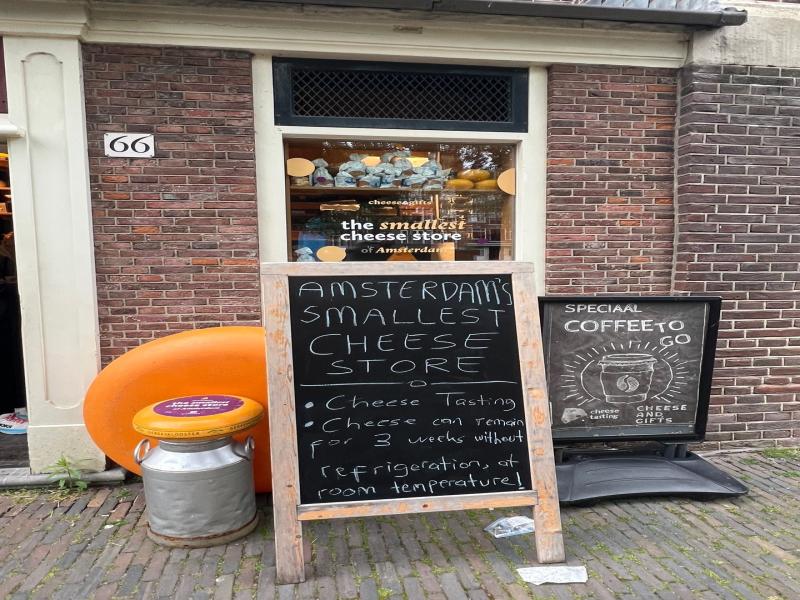 66
cheese&gifts
the smallest
cheese store
of Amsterdam
AMSTERDAM'S
SMALLEST
CHEESE
STORE
• Cheese Tasting
• Cheese can remain
for 3 weeks without
refrigeration, at
room temperature!
SPECIAAL
COFFEE TO
GO
cheese
tasting
CHEESE
AND
GIFTS
the smallest
cheese store
of Amsterdam